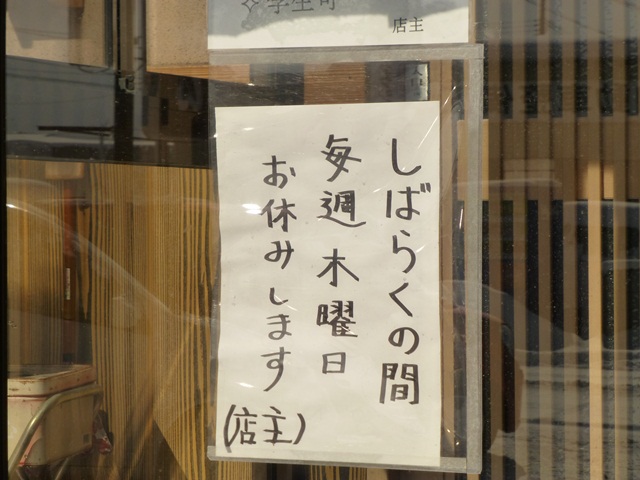 学生可
店主
しばらくの間
毎週木曜日
お休みします
(店主)